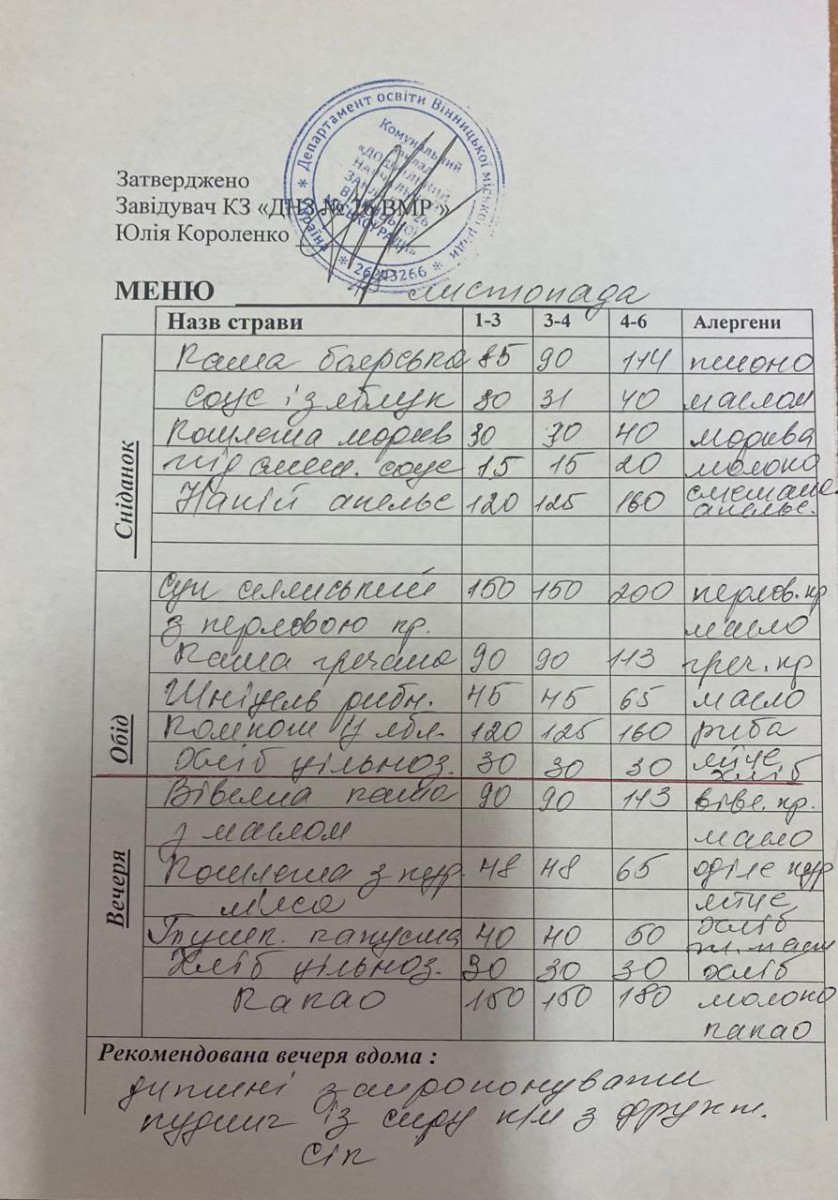 Департамент освіти Вінницької міської ради
Україна
Комунальний
заклад
26243266
Затверджено
Завідувач КЗ «ДНЗ № 26 ВМР»
Юлія Короленко
МЕНЮ листопада
Назв страви 1-3 3-4 4-6 Алергени
Сніданок
Каша боярська 85 90 114 пшоно
соус із яблук 30 31 40 маслом
Котлета моркв 30 30 40 морква
під смет. соус 15 15 20 молоко
Напій апельс 120 125 160 сметана
апельс.
Обід
Суп селянський 150 150 200 перлов. кр
з перловою кр. масло
Каша гречана 90 90 113 греч. кр
Шніцель рибн. 45 45 65 масло
Компот з ябл. 120 125 160 риба
Хліб цільноз. 30 30 30 яйце
хліб
Вечеря
Вівсяна каша 90 90 113 вівс. кр.
з маслом масло
Котлета з кур. 48 48 65 філе кур
м'яса яйце
Тушк. капуста 40 40 50 хліб
Хліб цільноз. 30 30 30 хліб
Какао 150 150 180 молоко
какао
Рекомендована вечеря вдома :
дитині запропонувати
пудинг із сиру к/м з фрукт.
сік